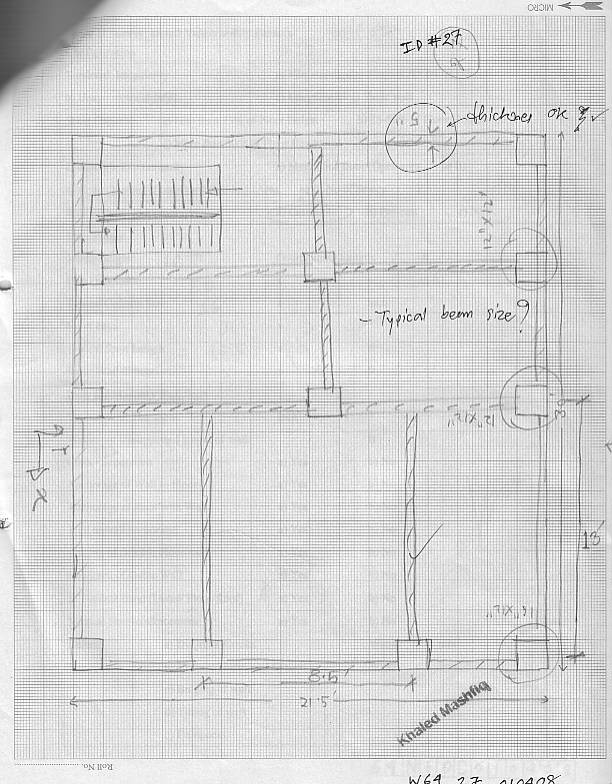 MICRO
ID #27
5"
thickness ok ?
12"X12"
- Typical beam size?
12"X12"
Y
X
13'
8.5'
21.5'
Khaled Mashfiq
Roll No.
W64 27 010408